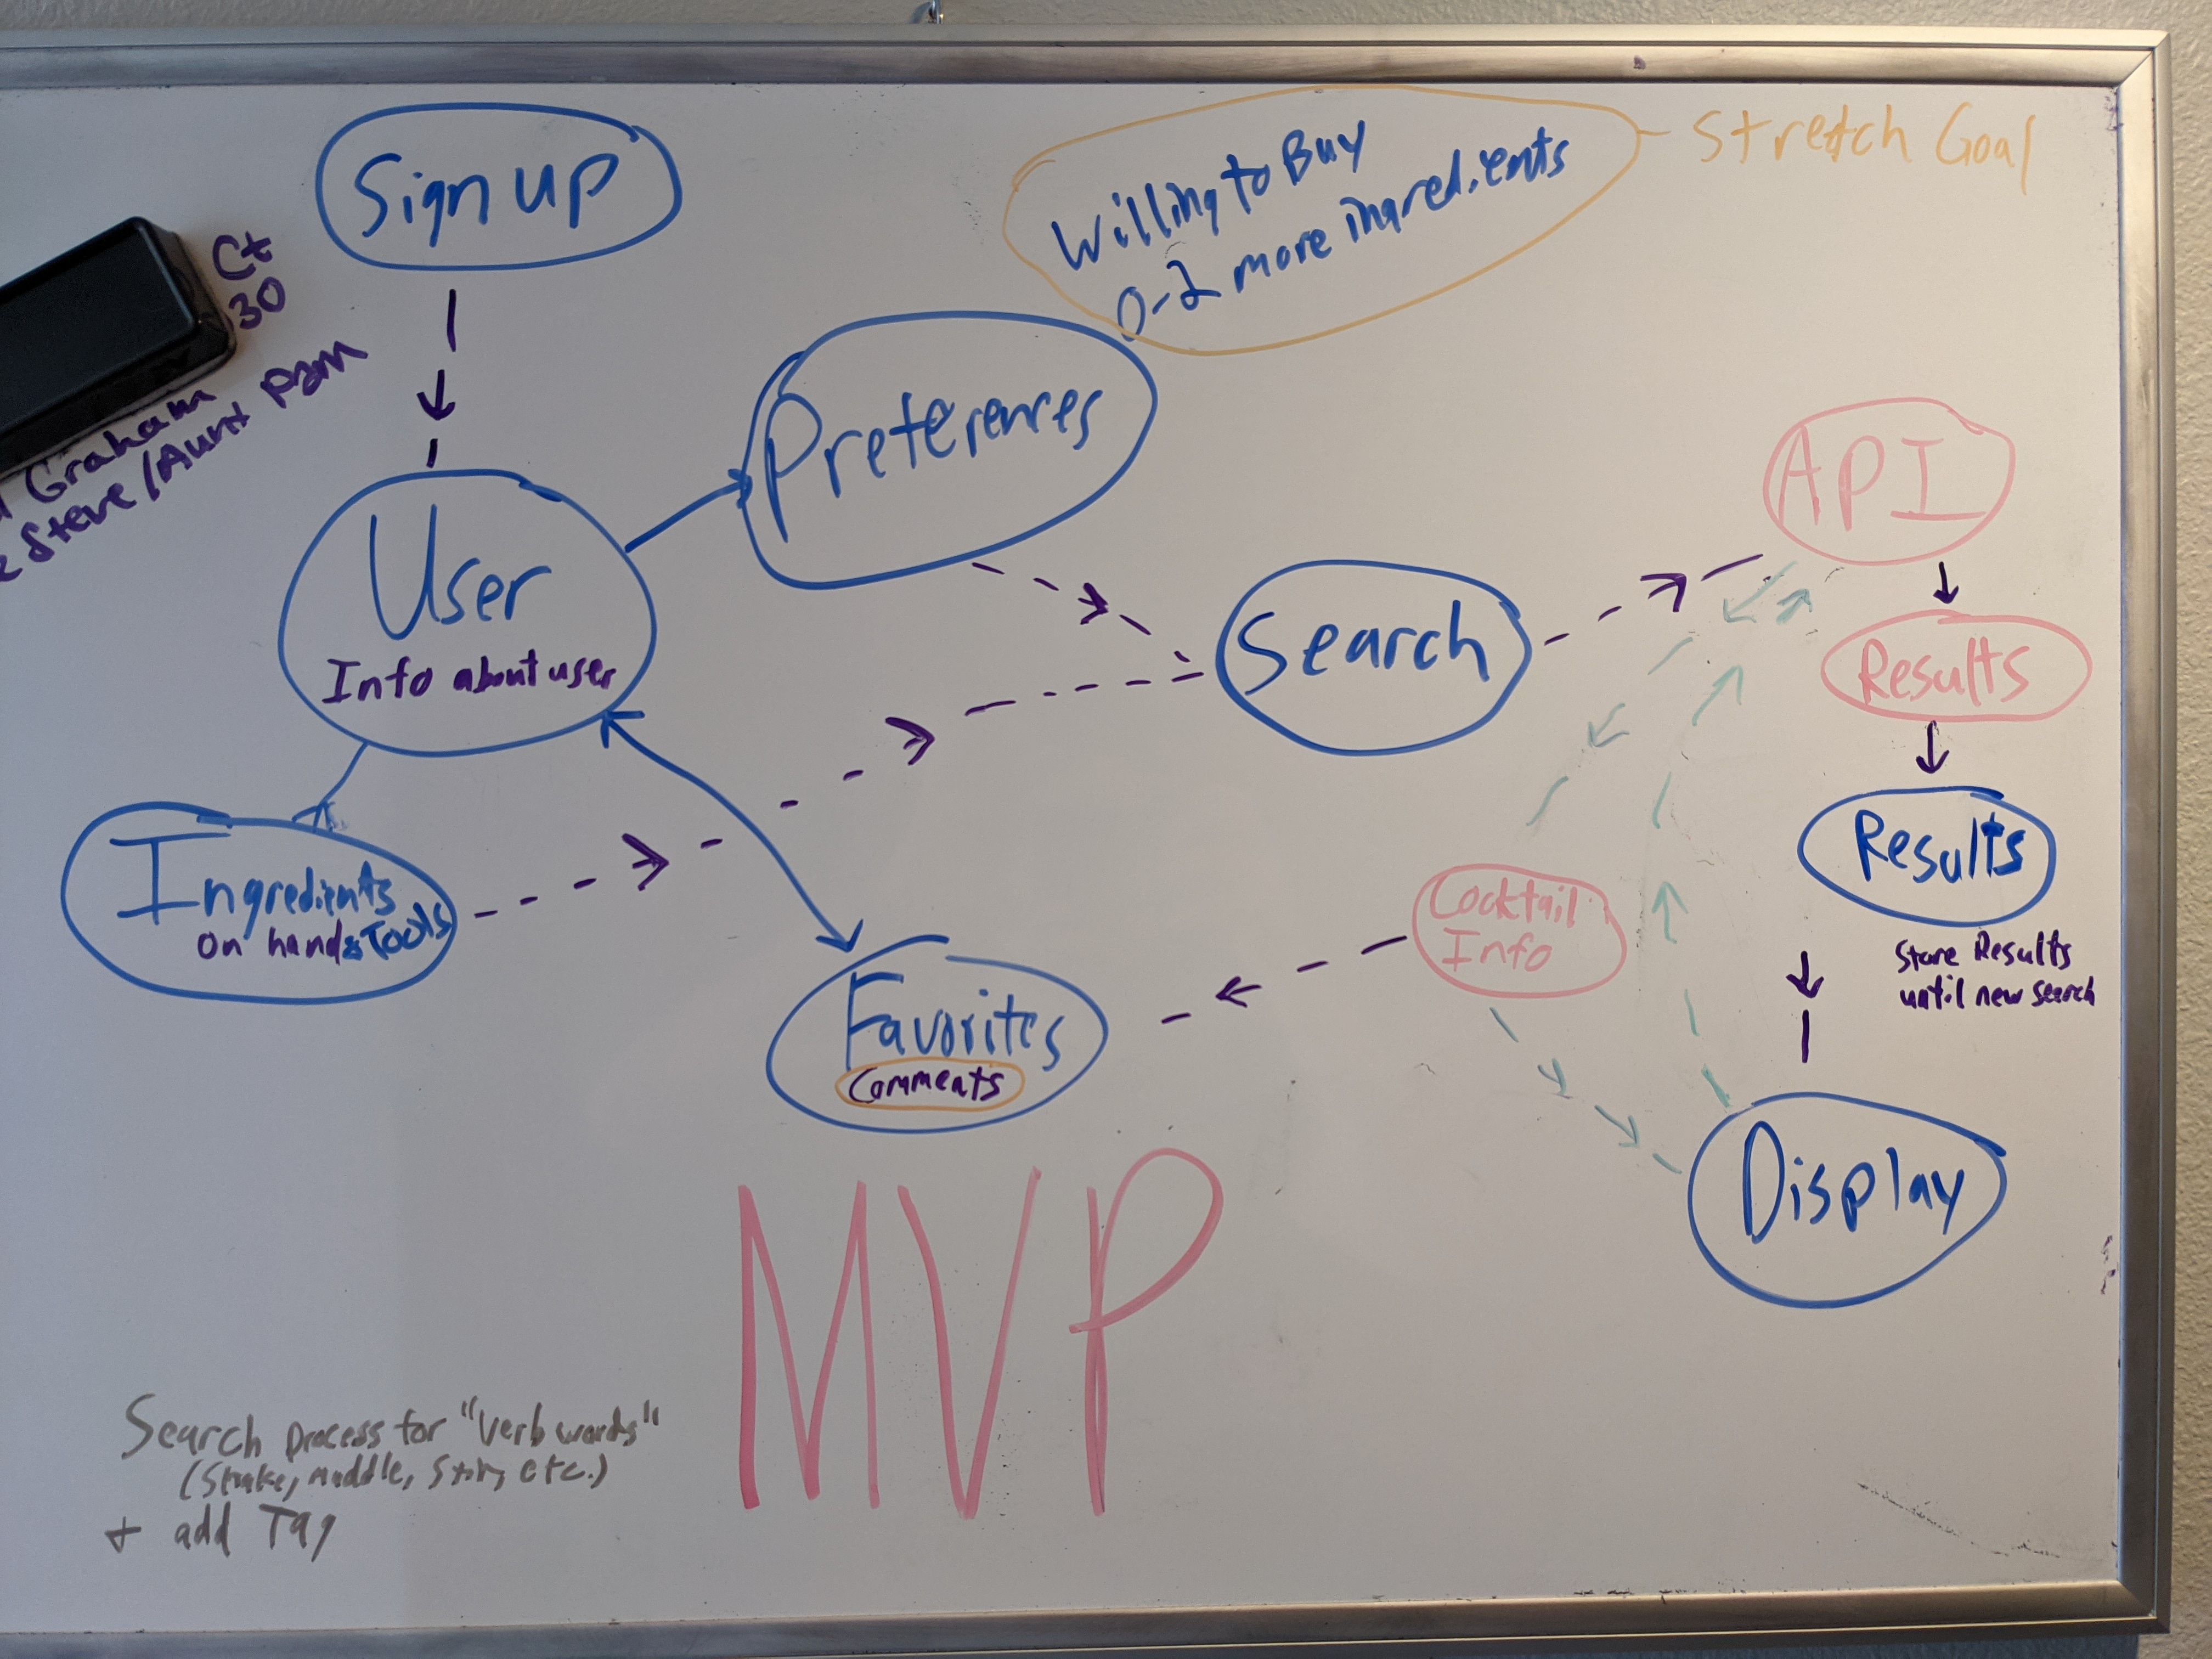 Sign up
Willing to Buy
0-2 more ingredients
Stretch Goal
Ct
30
Graham
Steve/Aunt Pam
Preferences
API
User
Info about user
Search
Results
Results
Store Results
until new search
Ingredients
on hand & Tools
Cocktail
Info
Favorites
Comments
Display
MVP
Search process for "Verb words"
(Shake, muddle, Stir, etc.)
+ add Tag